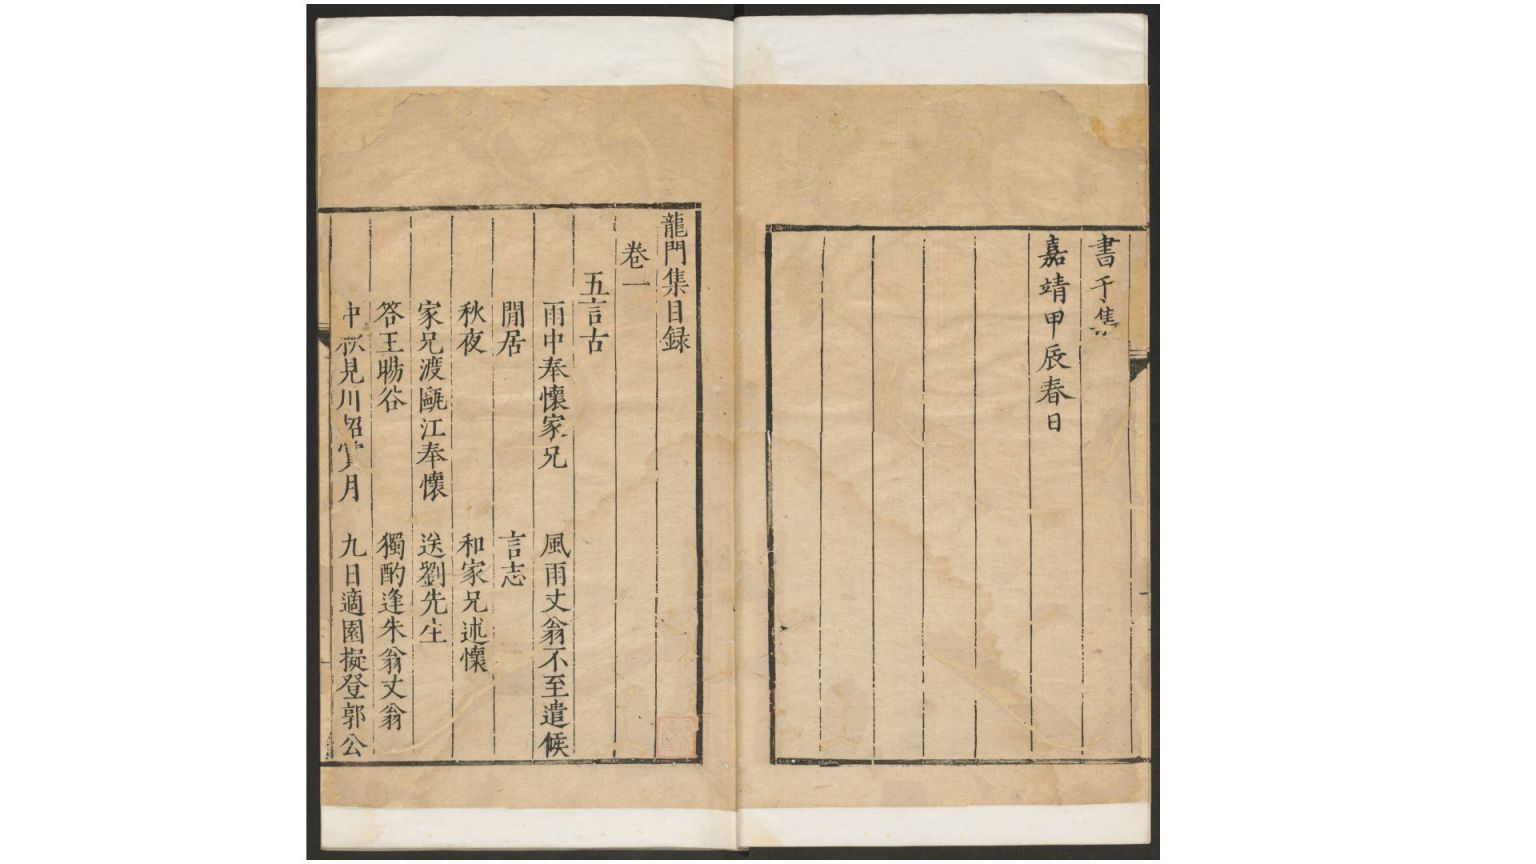 書于集
嘉靖甲辰春日
龍門集目録
卷一
五言古
雨中奉懷家兄 風雨丈翁不至遣候
閒居 言志
秋夜 和家兄述懷
家兄渡甌江奉懷 送劉先生
答王暘谷 獨酌逢朱翁丈翁
中秋見川招賞月 九日適園擬登郭公